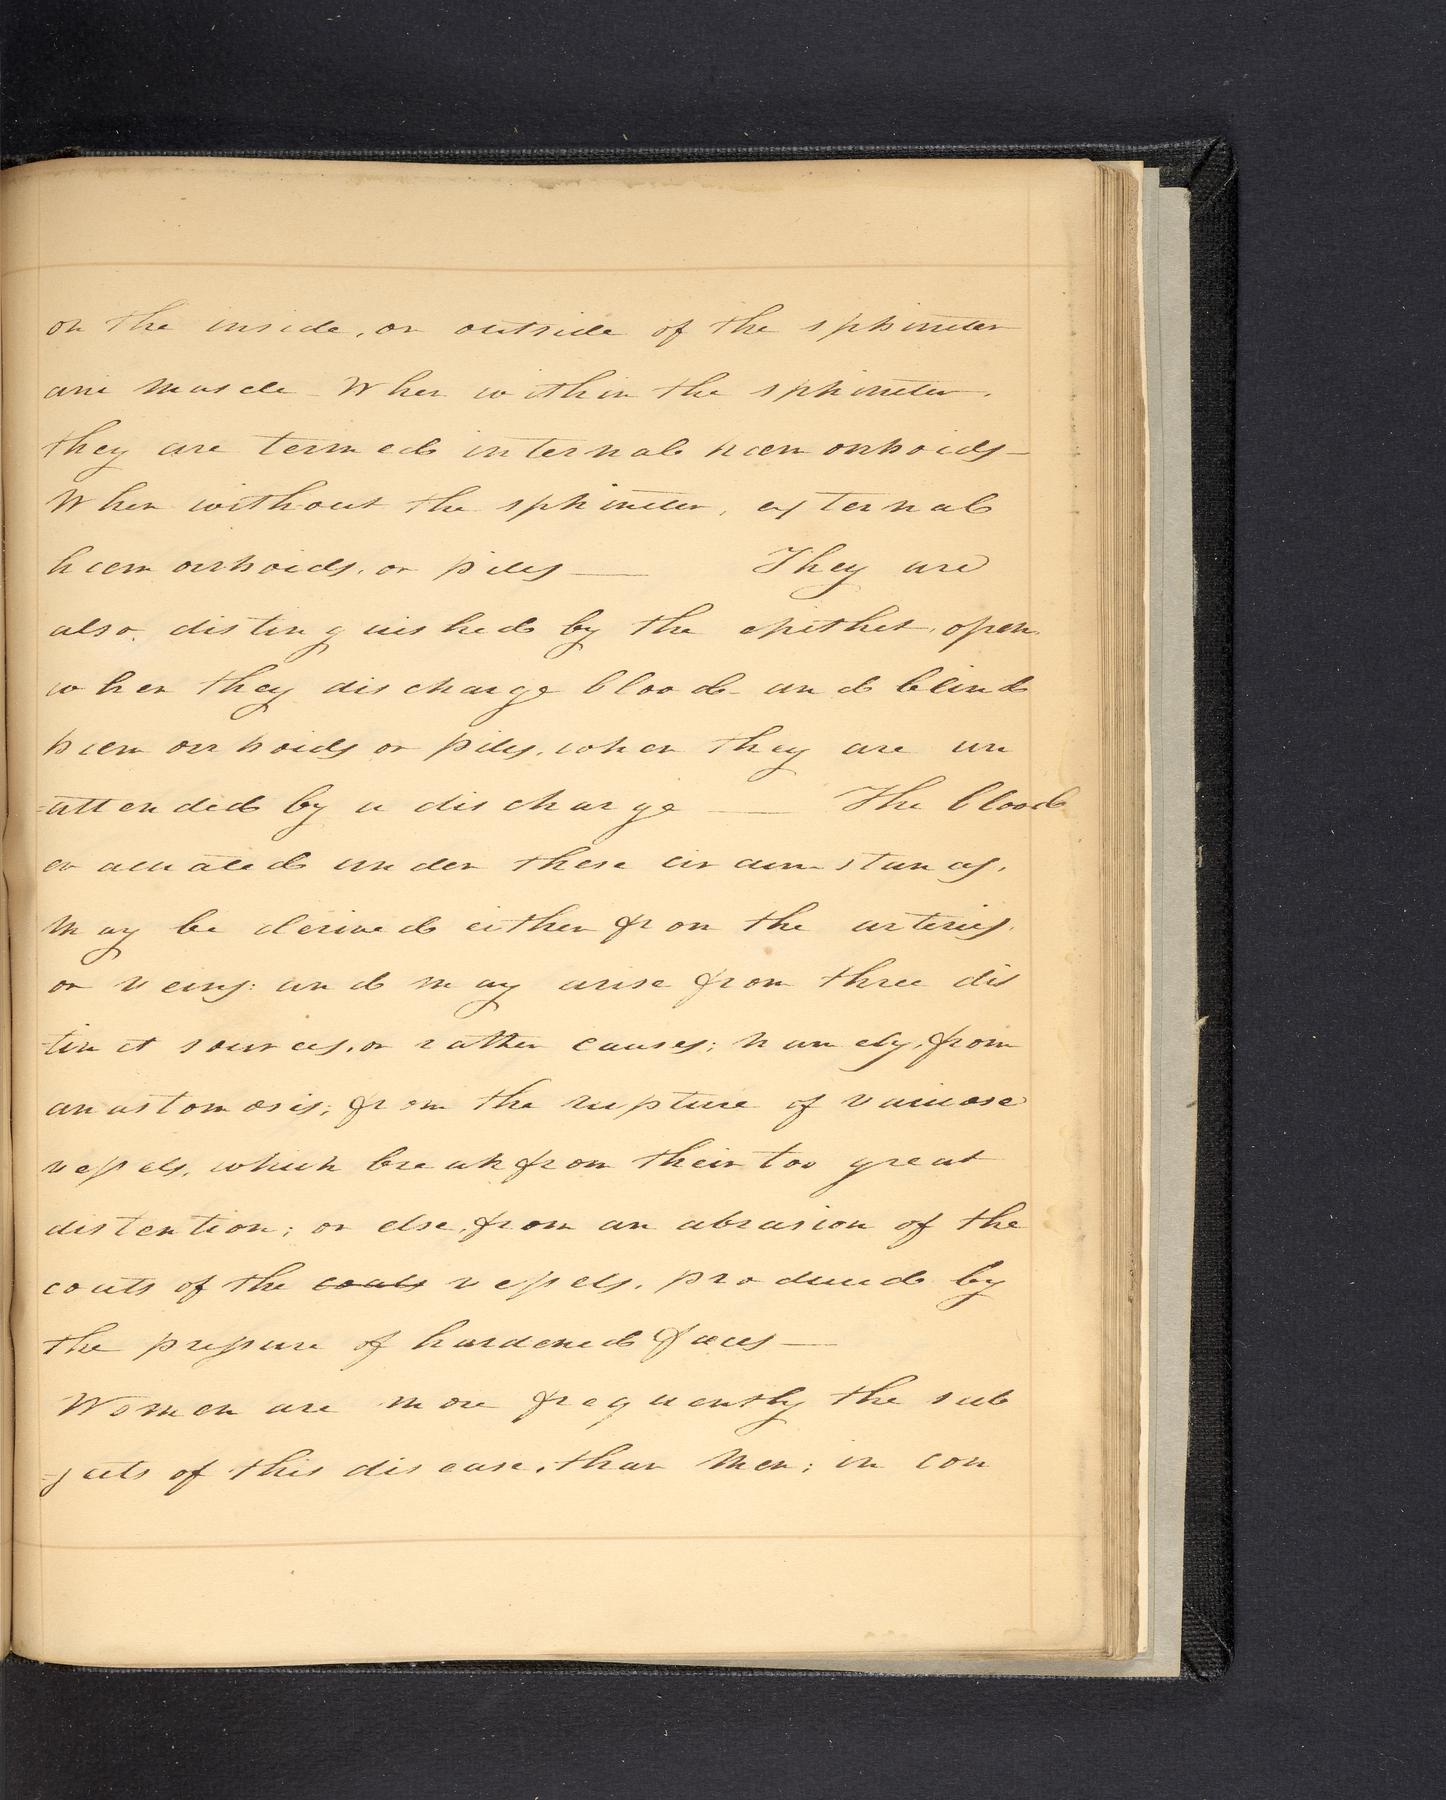 on the inside, or outside of the sphincter
ani muscle – When within the sphincter,
they are termed internal hæmorrhoids –
When without the sphincter, external
hæmorrhoids, or piles — They are
also, distinguished by the epithet, open
when they discharge blood – and blind
hæmorrhoids or piles, when they are un
=attended by a discharge — The blood
evacuated under these circumstances,
may be derived either from the arteries,
or veins: and may arise from three dis
=tinct sources, or rather causes; namely, from
anastomosis; from the rupture of varicose
vessels, which break from their too great
distention; or else, from an abrasion of the
coats of the coats vessels, produced by
the pressure of hardened fæces —
Women are more frequently the sub
=jects of this disease, than men; in con